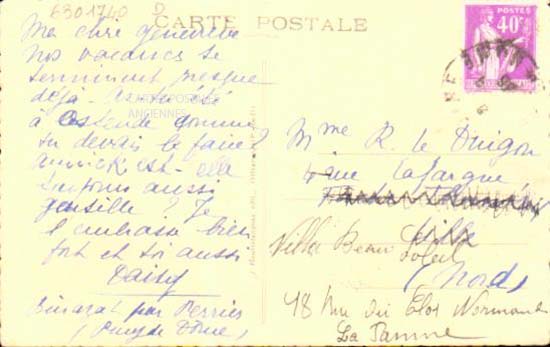 6301740 D
CARTE POSTALE
POSTES
40c
Ma chère Geneviève
Nos vacances se
terminent presque
déjà. As tu été
à Ostende comme
tu devais le faire?
Annick est-elle
toujours aussi
gentille? Je
t'embrasse bien
fort et toi aussi
Daisy
par Perrier
(Puy de Dôme)
CARTES POSTALES
ANCIENNES
Mme R. le Duigou
rue Lafargue
Lille
(Nord)
Villa Beau Soleil
48 du Clos Normand
La Panne